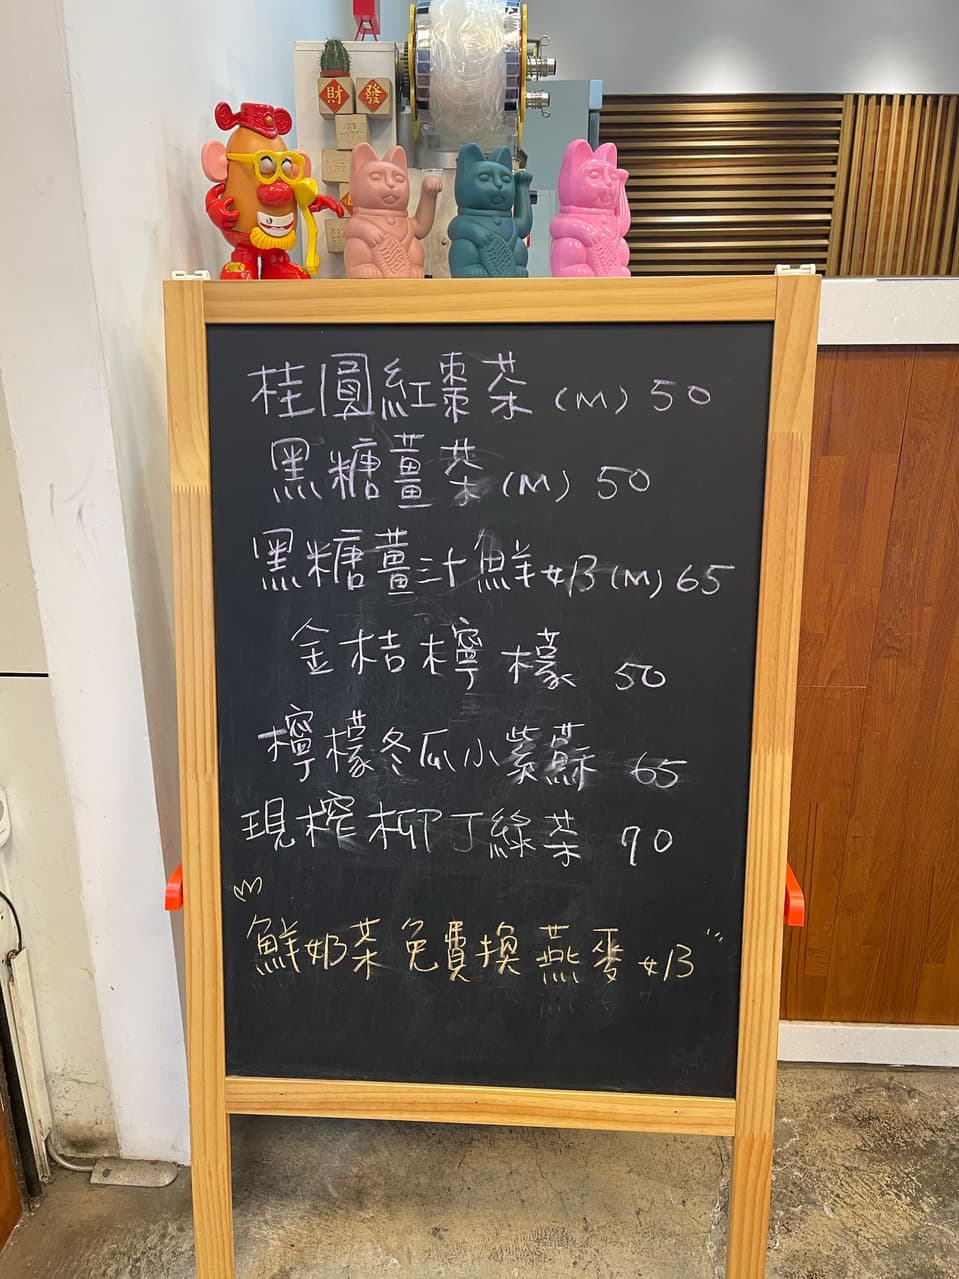 財 發
桂圓紅棗茶 (M) 50
黑糖薑茶 (M) 50
黑糖薑汁鮮奶 (M) 65
金桔檸檬 50
檸檬冬瓜小紫蘇 65
現榨柳丁綠茶 90
鮮奶茶免費換燕麥奶